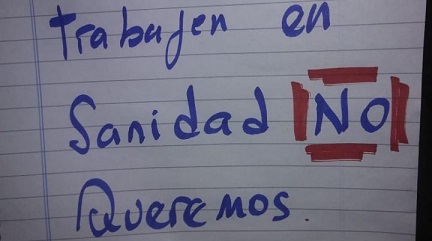 trabajen en
Sanidad NO
Queremos.